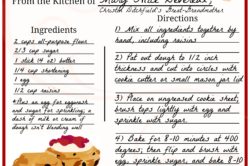 From the Kitchen of
Crystal Satchfield's Great-Grandmother
Ingredients
2 cups all-purpose flour
2/3 cup sugar
1 stick (4 oz) butter
1/4 cup shortening
1 egg
1/2 cup raisins
*Plus an egg for eggwash
and sugar for sprinkling; a
dash of milk or cream if
dough isn't blending well
Directions
1) Mix all ingredients together
by hand, including raisins
2) Pat out dough to 1/2 inch
thickness and cut into circles with
cookie cutter or small mason jar lid
3) Place on ungreased cookie sheet,
brush tops lightly with egg and
sprinkle with sugar.
4) Bake for 8-10 minutes at 400
degrees; then flip and brush with
egg, sprinkle sugar, and bake 8-10